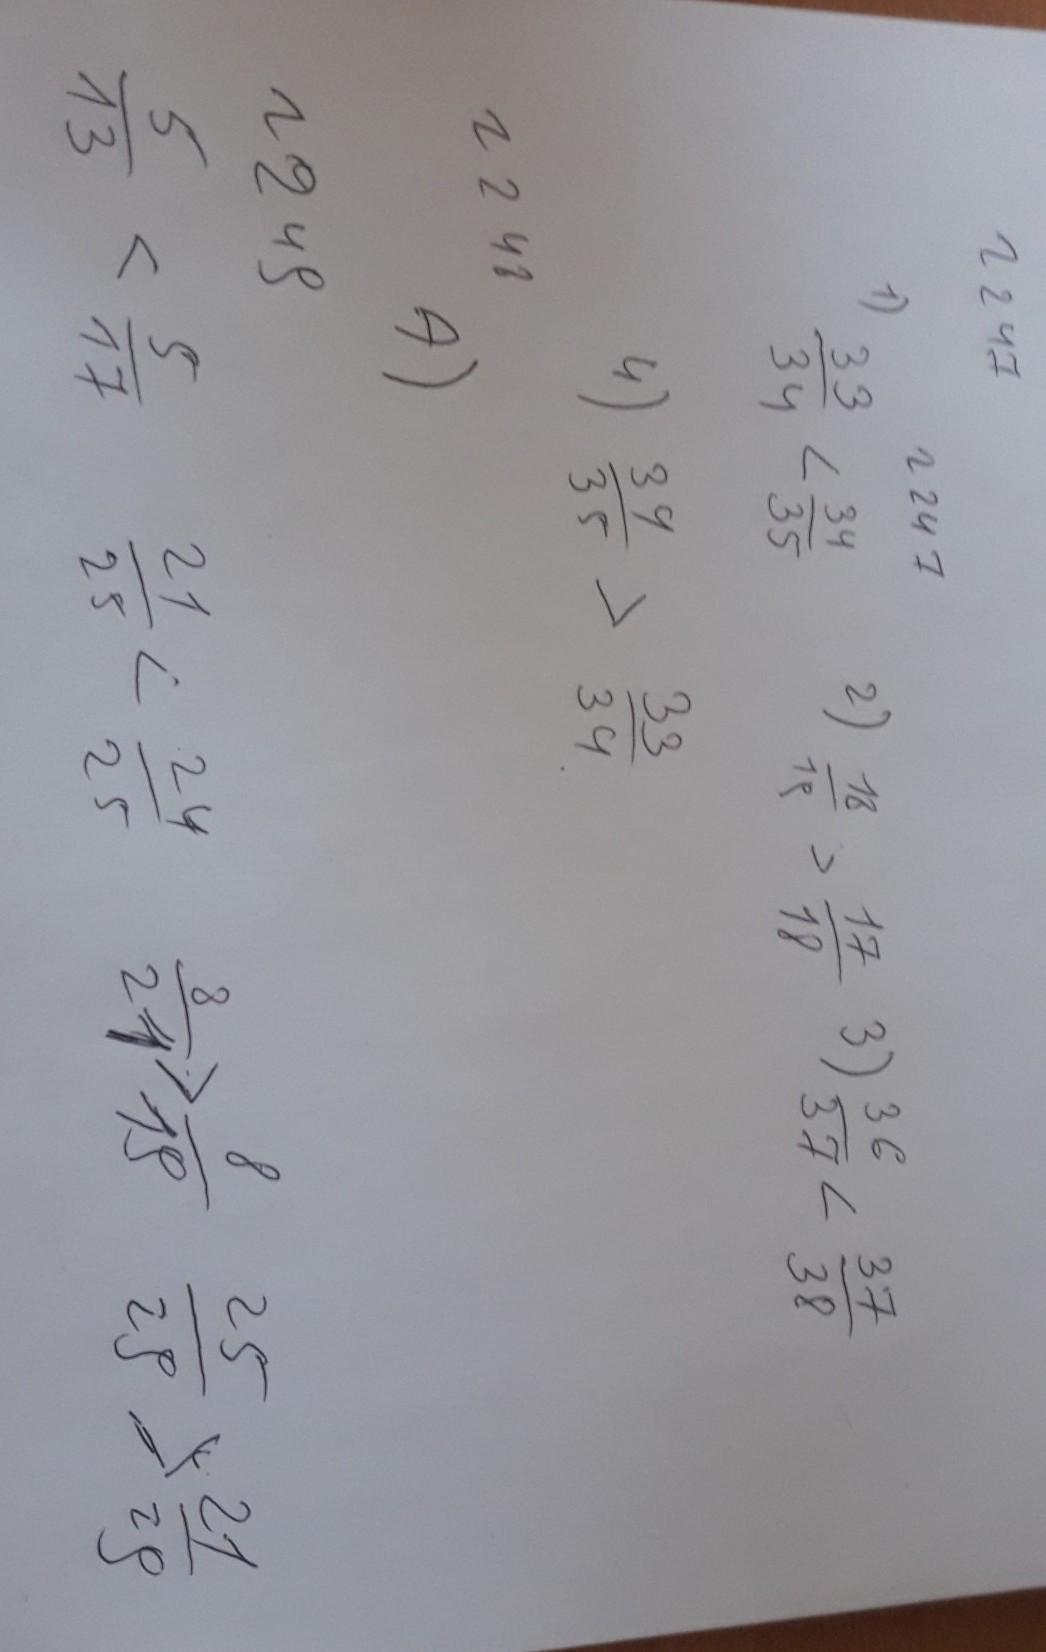 2247
2247
1) 33/34 < 34/35 2) 18/19 > 17/18 3) 36/37 < 37/38
4) 34/35 > 33/34
2248
A)
2249
5/13 < 5/17 21/25 < 24/25 8/21 > 8/19 25/29 > 21/29